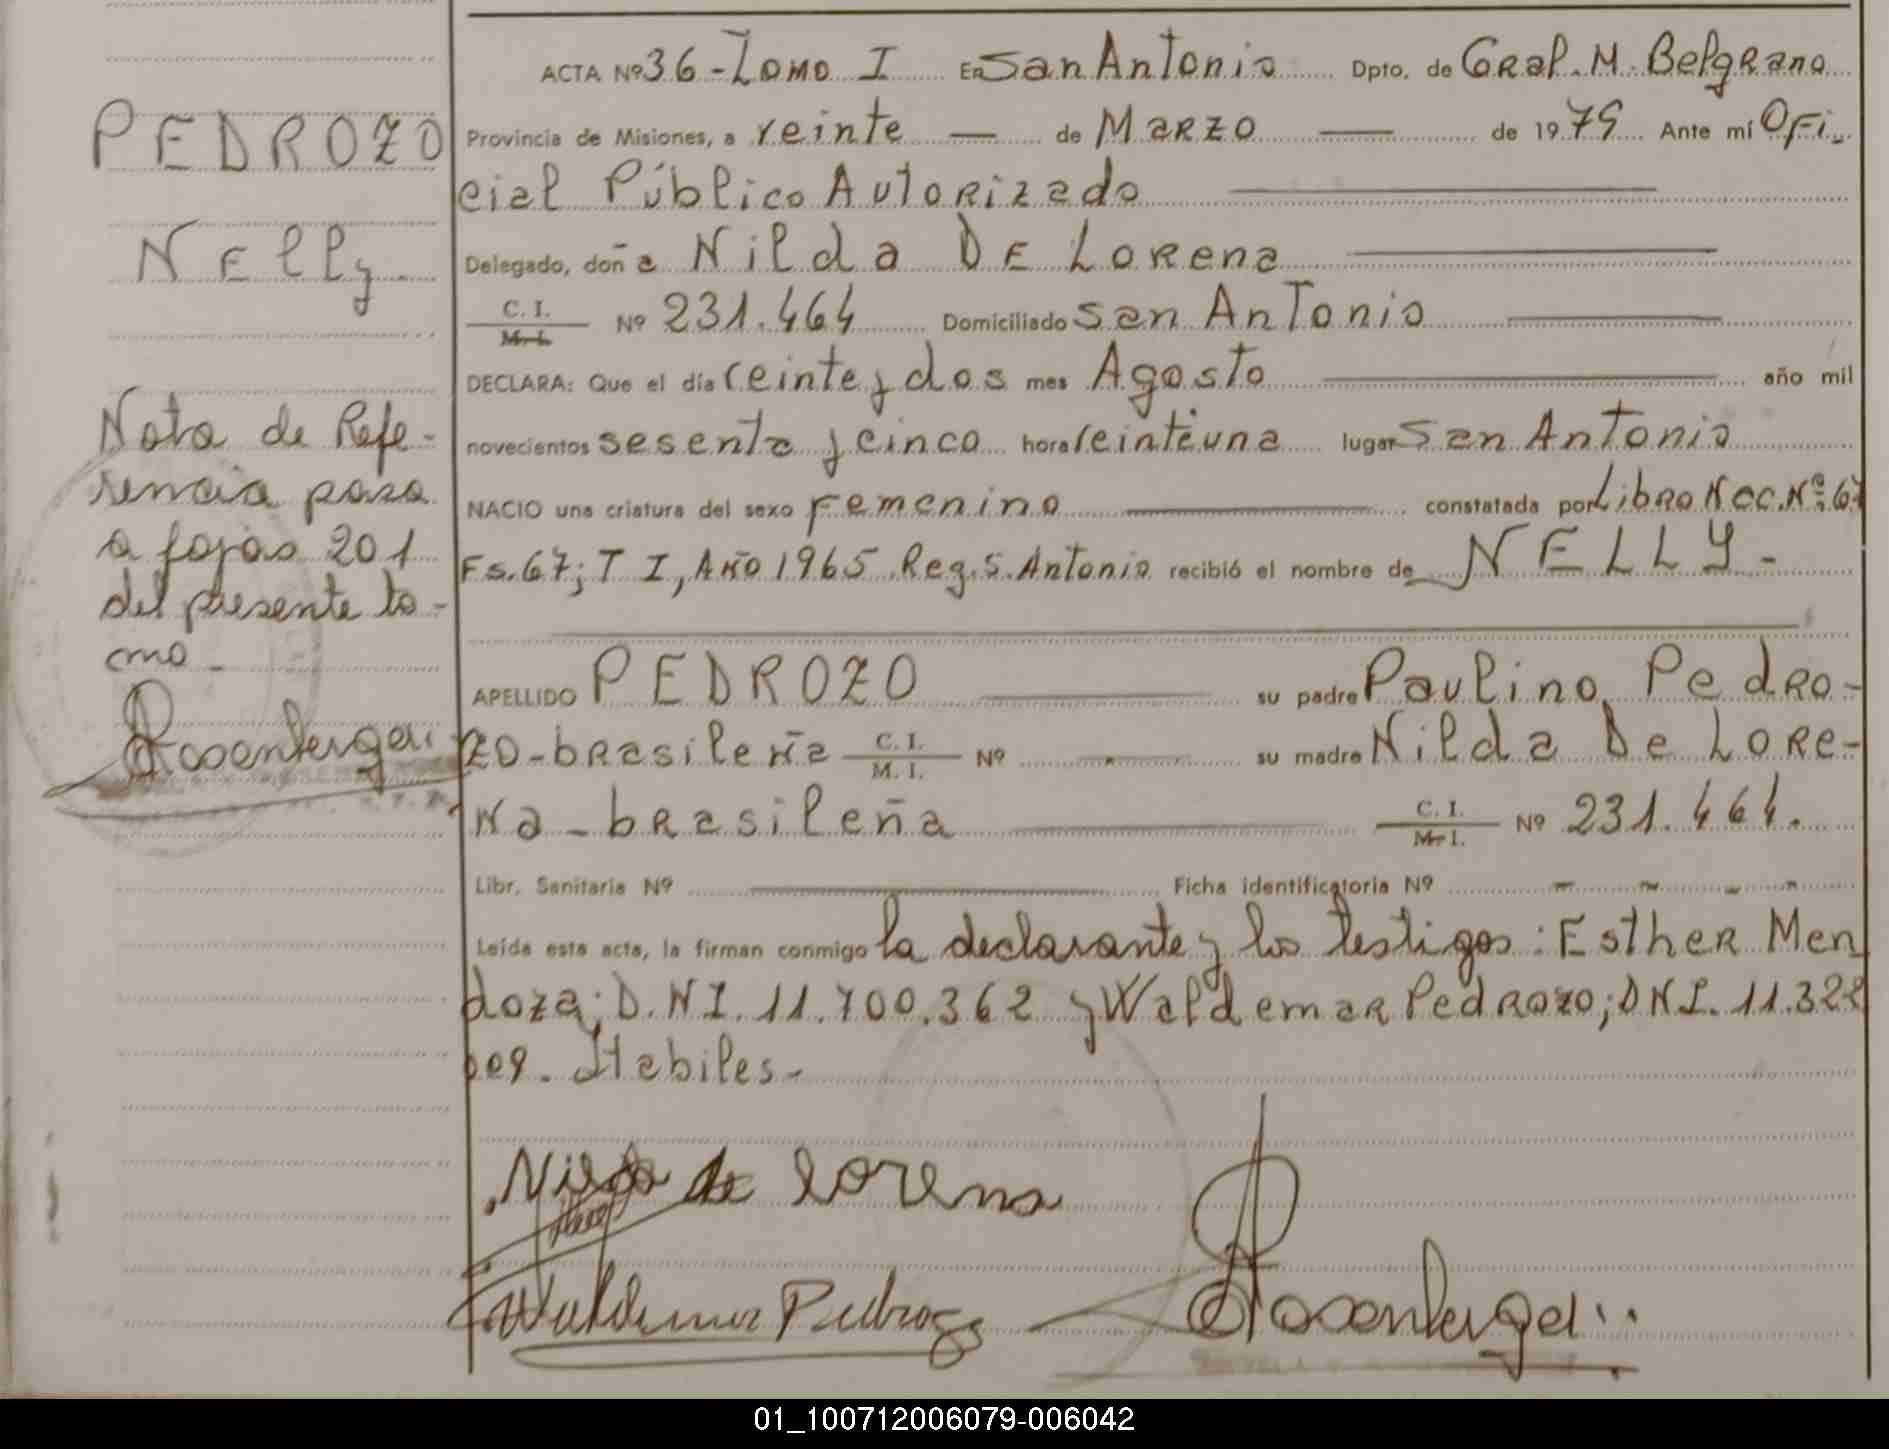 PEDROZO
Nelly.
Nota de Refe-
rencia pasa
a fojas 201
del presente to-
mo.
ACTA Nº 36 - Tomo I En San Antonio Dpto. de Gral. M. Belgrano
Provincia de Misiones, a veinte — de Marzo — de 1979 Ante mí Ofi-
cial Público Autorizado
Delegado, doña Nilda De Lorena
C. I. M. I. Nº 231.464 Domiciliado San Antonio
DECLARA: Que el día veinte y dos mes Agosto año mil
novecientos sesenta y cinco hora veintiuna lugar San Antonio
NACIO una criatura del sexo Femenino constatada por Libro Nac. Nº 67
Fs. 67; T I, Año 1965 Reg. S. Antonio recibió el nombre de NELLY -
APELLIDO PEDROZO su padre Paulino Pedro-
zo - brasileña C. I. M. I. Nº - su madre Nilda De Lore-
na - brasileña C. I. M. I. Nº 231.464.
Libr. Sanitaria Nº Ficha identificatoria Nº - - - -
Leída esta acta, la firman conmigo la declarante y los testigos: Esther Men
doza; D.N.I. 11.700.362 y Waldemar Pedrozo; DNI. 11.322
Habiles.-
Nilda de Lorena
Waldemar Pedrozo
01_100712006079-006042